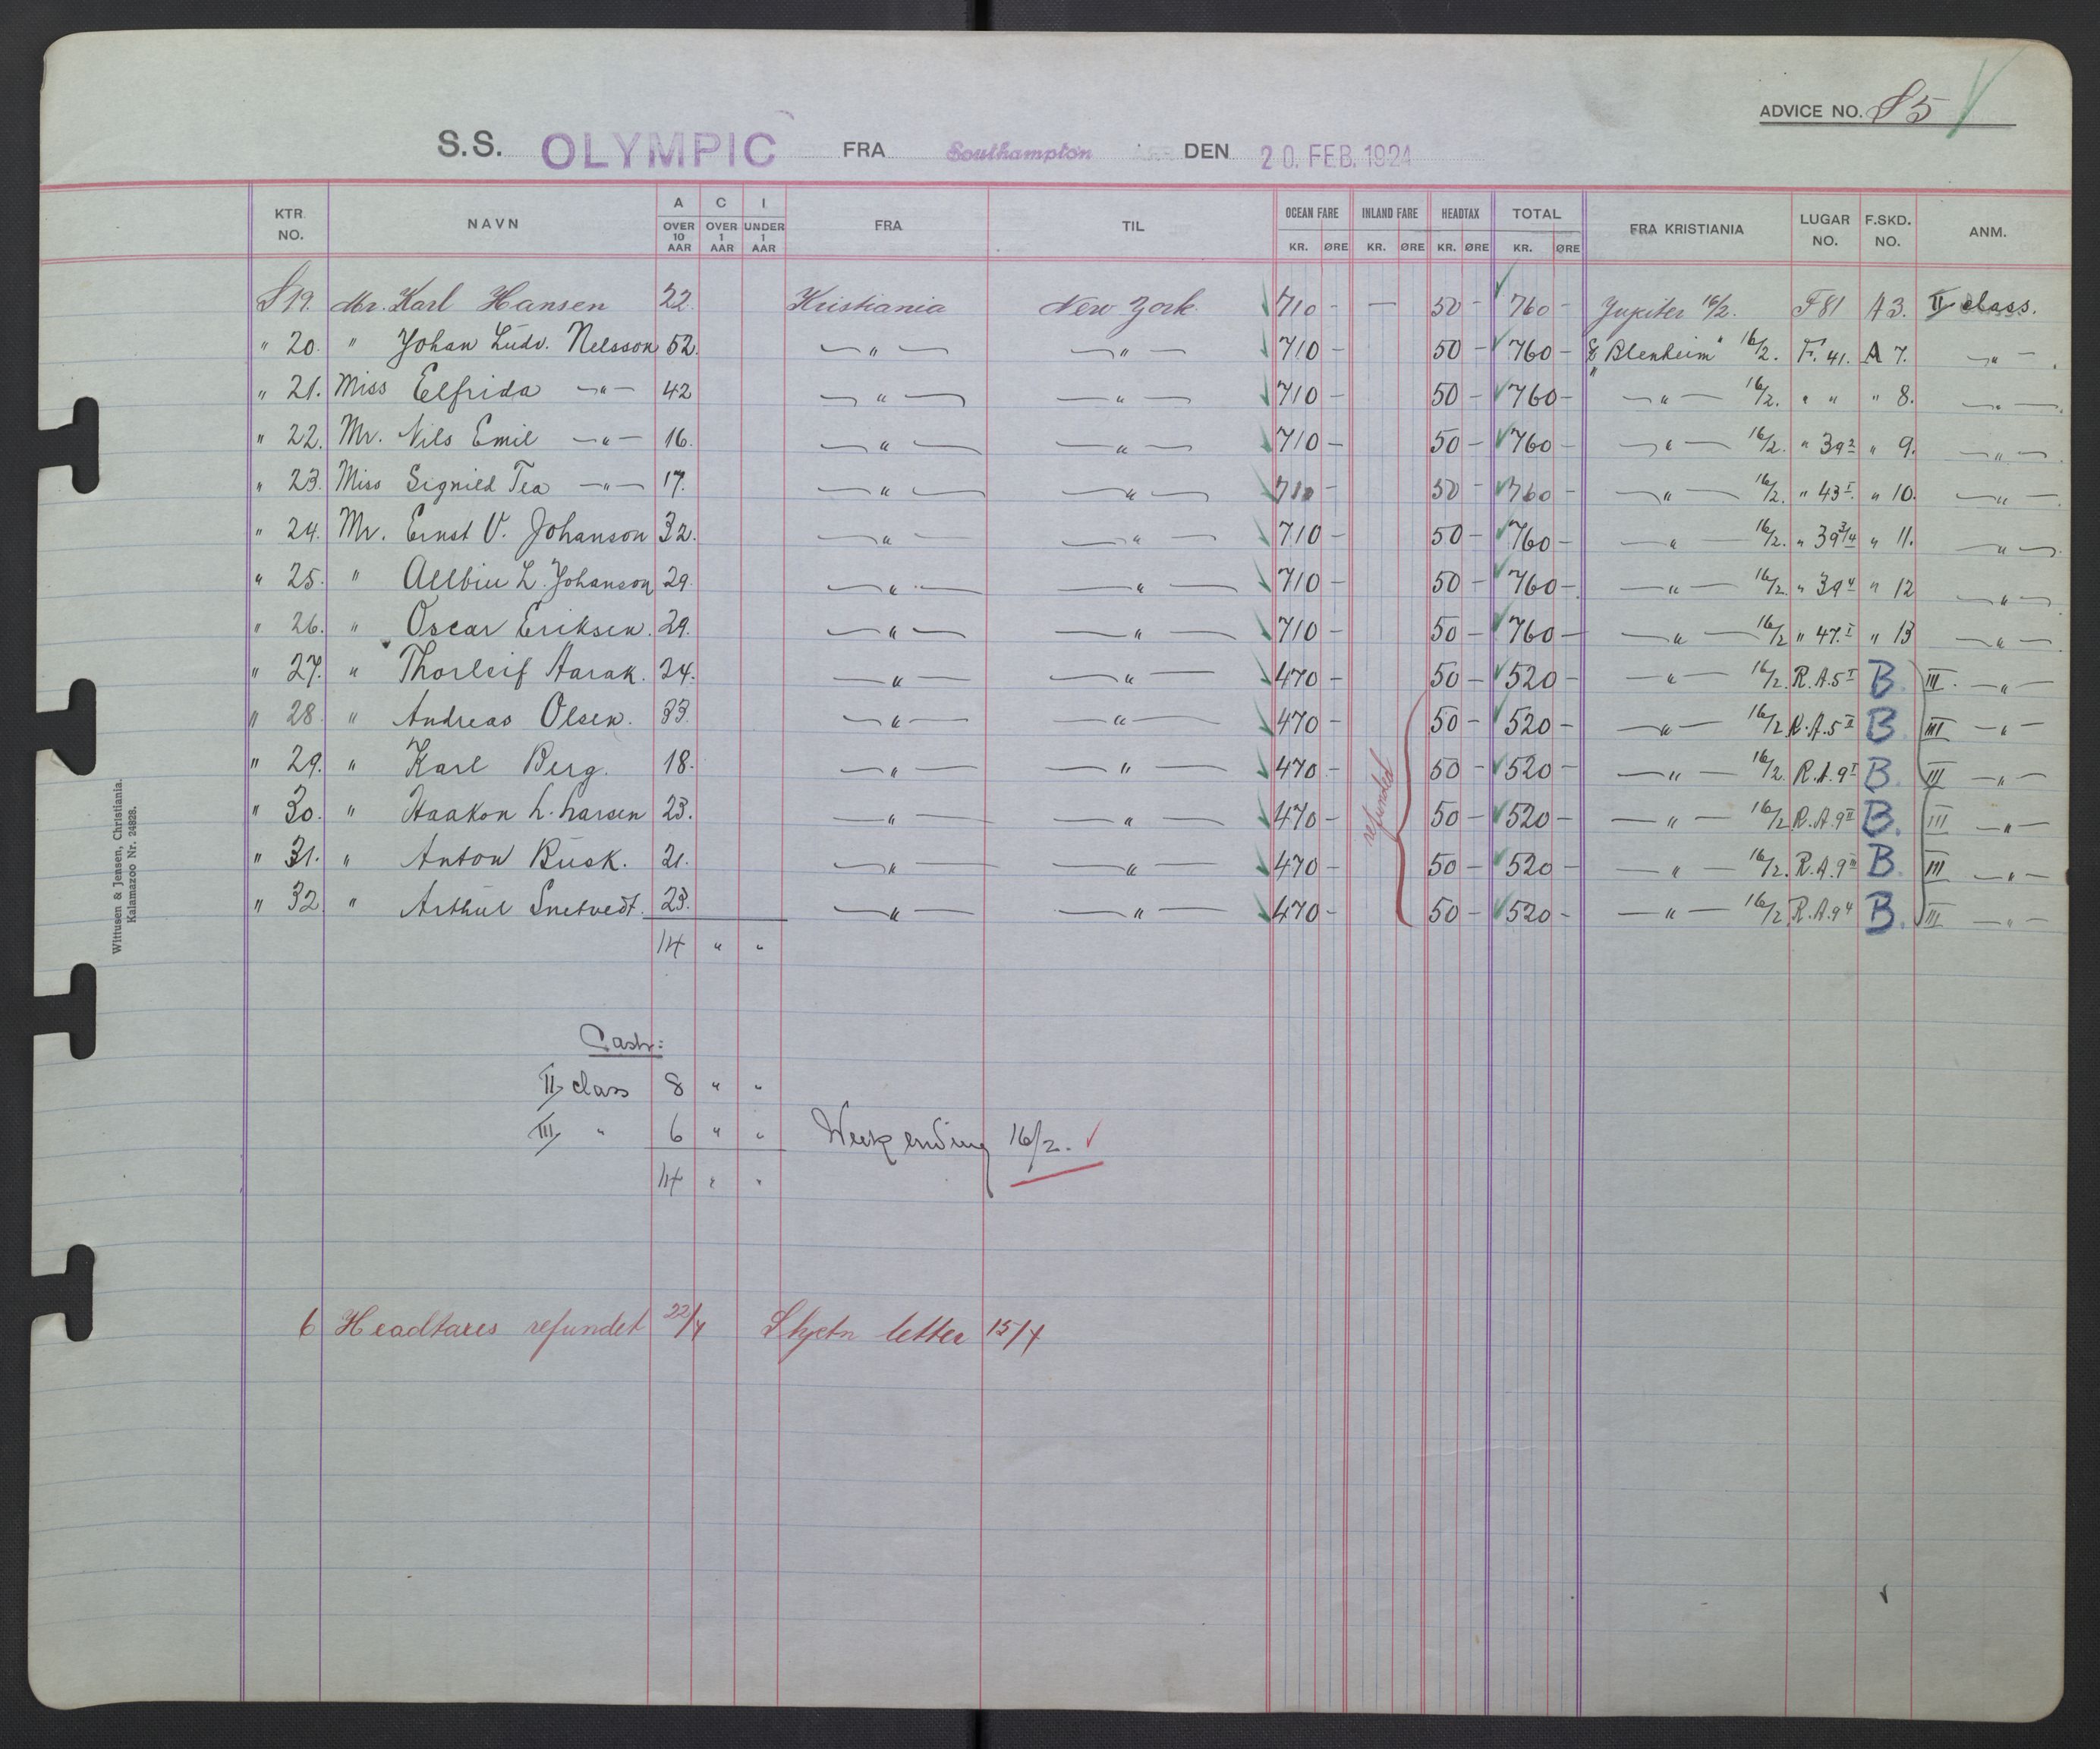 ADVICE NO. S5
S.S. OLYMPIC FRA Southampton DEN 20. FEB. 1924
KTR. NO. NAVN A OVER 10 AAR C OVER 1 AAR I UNDER 1 AAR FRA TIL OCEAN FARE KR. ØRE INLAND FARE KR. ØRE HEADTAX KR. ØRE TOTAL KR. ØRE FRA KRISTIANIA LUGAR NO. F.SKD. NO. ANM.
S 19. Mr. Karl Hansen 22. Kristiania New York. 710 - — 50 - 760 - Jupiter 16/2. F 81 A 3. II class.
" 20. " Johan Ludv. Nelsson 52. —"— —"— 710 - 50 - 760 - "Blenheim" 16/2. F. 41. A 7. —"—.
" 21. Miss Elfrida —"— 42 —"— —"— 710 - 50 - 760 - —"— 16/2. " " " 8. —"—.
" 22. Mr. Nils Emil —"— 16. —"— —"— 710 - 50 - 760 - —"— 16/2. " 39² " 9. —"—.
" 23. Miss Signild Tea —"— 17. —"— —"— 710 - 50 - 760 - —"— 16/2. " 43 I. " 10. —"—.
" 24. Mr. Ernst V. Johanson 32. —"— —"— 710 - 50 - 760 - —"— 16/2. " 39 3/4 " 11. —"—.
" 25. " Allbin L. Johanson 29. —"— —"— 710 - 50 - 760 - —"— 16/2. " 39⁴ " 12 —"—.
" 26. " Oscar Eriksen. 29. —"— —"— 710 - 50 - 760 - —"— 16/2 " 47. I " 13 —"—.
" 27. " Thorleif Aarak. 24. —"— —"— 470 - 50 - 520 - —"— 16/2. R.A.5 I B. III. —"—
" 28 " Andreas Olsen. 33. —"— —"— 470 - 50 - 520 - —"— 16/2 R.A.5 II B. III —"—
" 29. " Karl Berg. 18. —"— —"— 470 - 50 - 520 - —"— 16/2. R.A.9 I B. III —"—
" 30. " Haakon L. Larsen 23. —"— —"— 470 - 50 - 520 - —"— 16/2 R.A.9 II B. III —"—
" 31. " Anton Busk. 21. —"— —"— 470 - 50 - 520 - —"— 16/2. R.A.9 III B. III —"—
" 32. " Arthur Snetvedt. 23. —"— —"— 470 - 50 - 520 - —"— 16/2 R.A.9⁴ B. III —"—
refunded
14 " "
Cash:
II class 8 " "
III " 6 " " Week ending 16/2.
14 " "
6 Headtaxes refundet 22/4 letter 15/4
Wittusen & Jensen, Christiania.
Kalamazoo Nr. 24828.